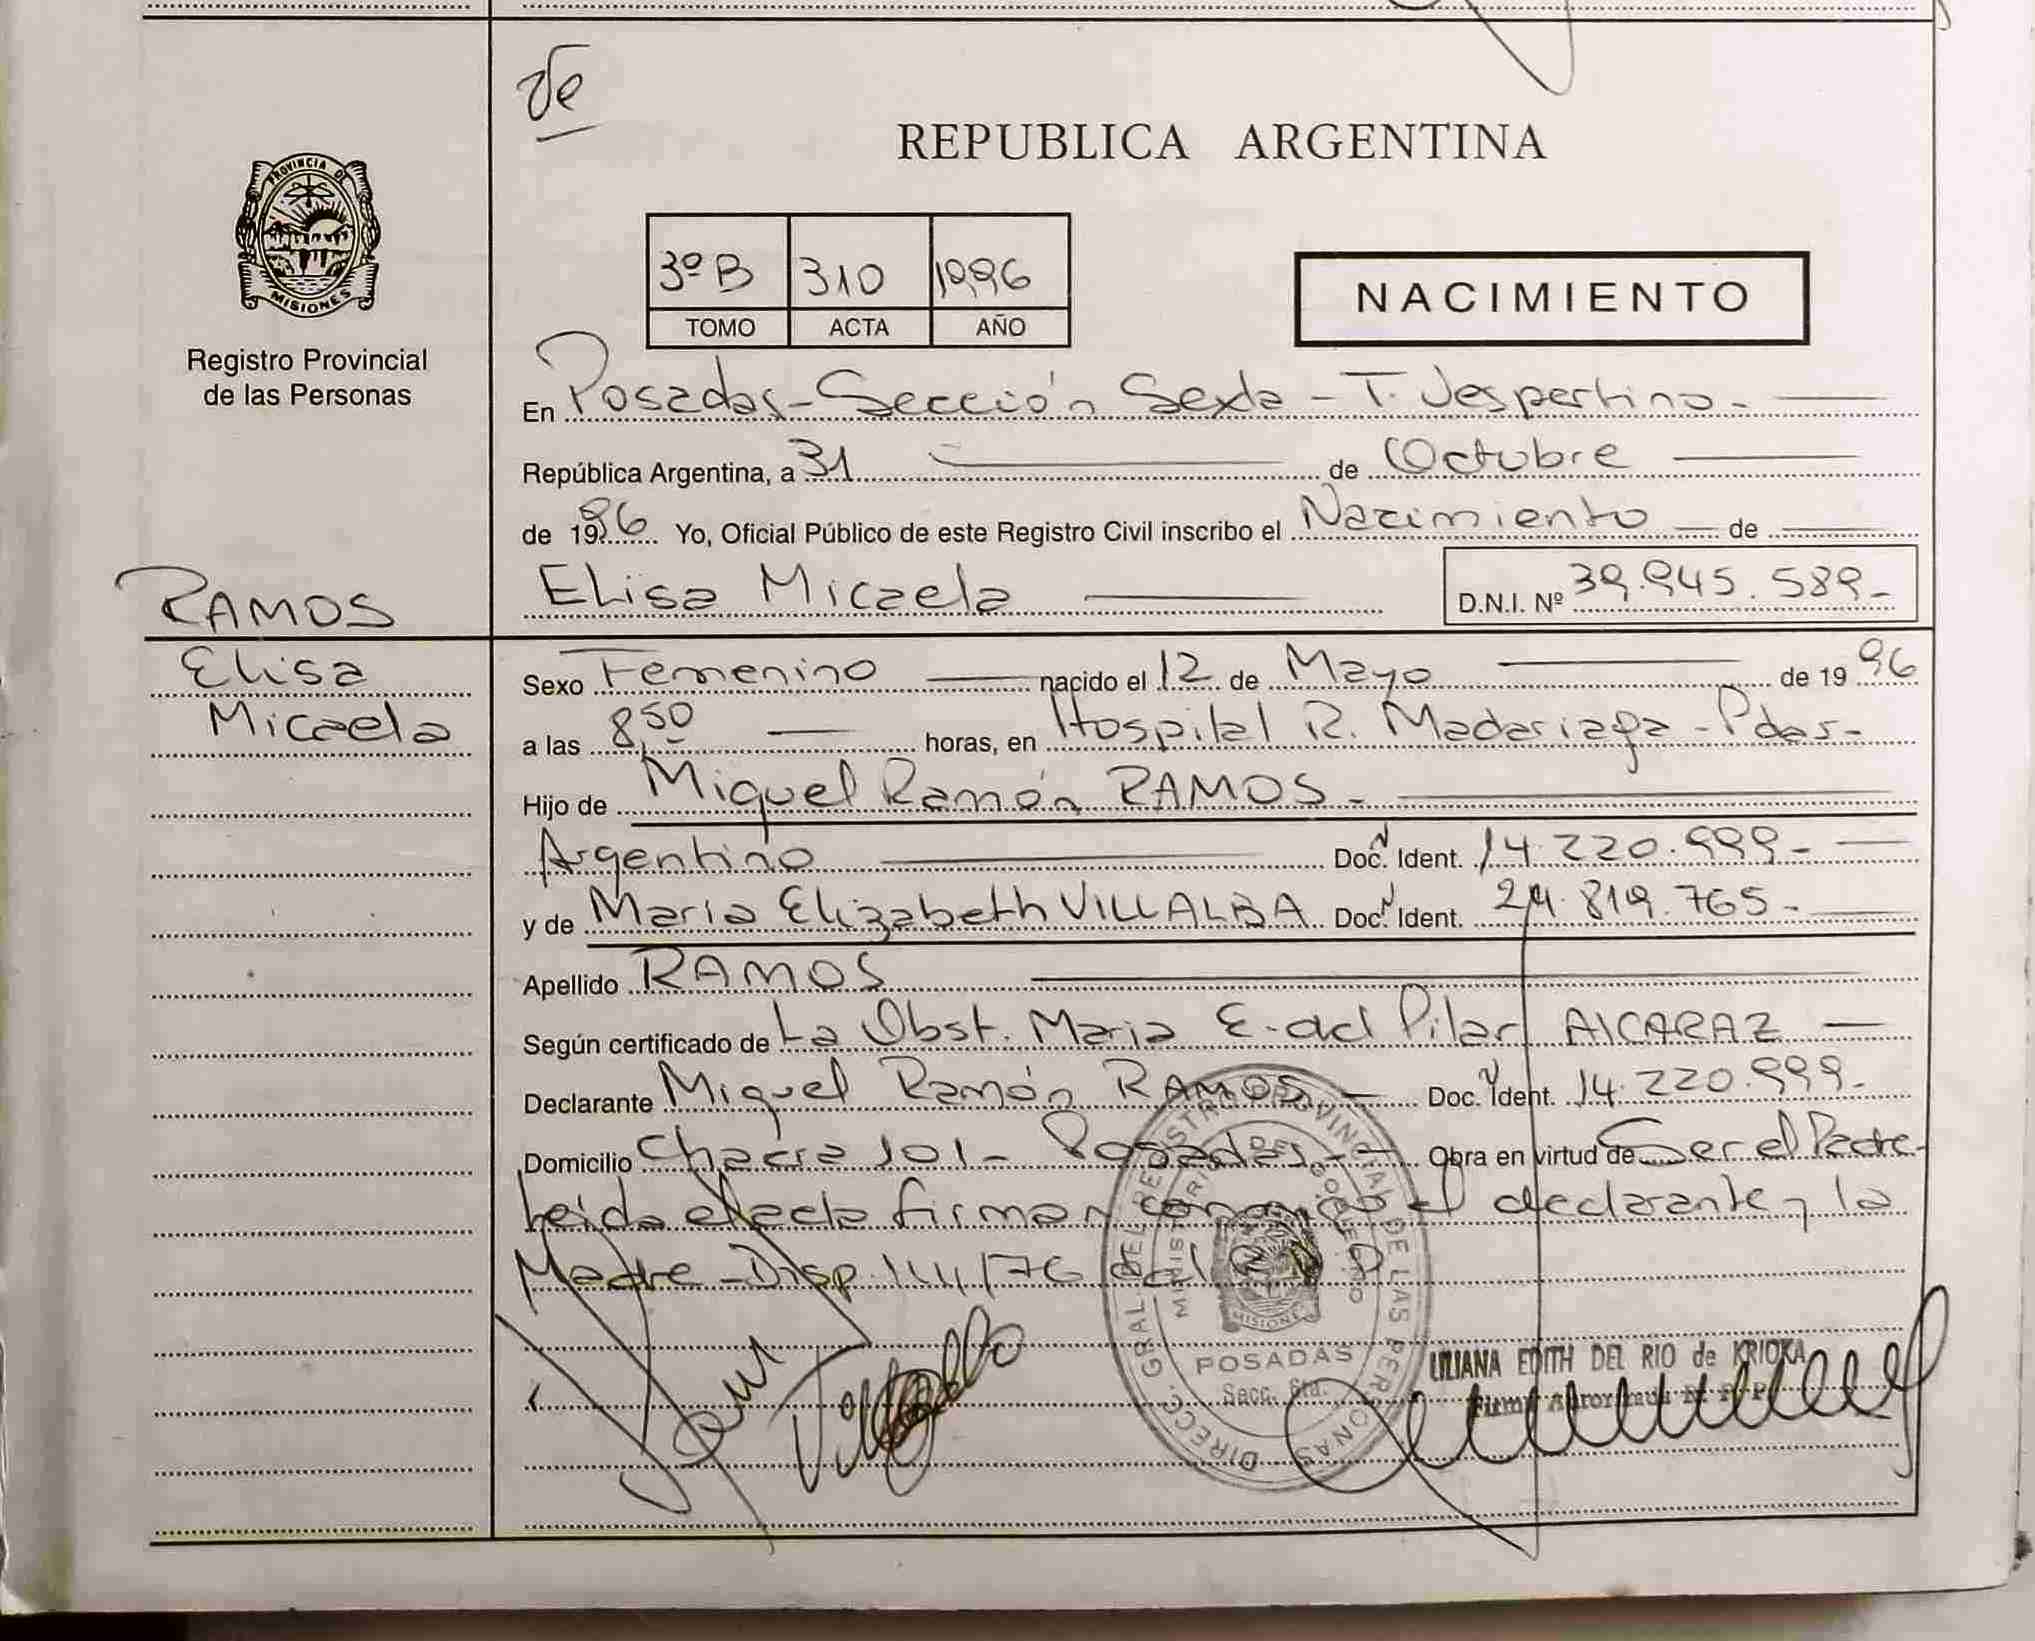 Ve
REPUBLICA ARGENTINA
PROVINCIA DE
MISIONES
Registro Provincial
de las Personas
3º B 310 1996
TOMO ACTA AÑO
NACIMIENTO
En Posadas - Sección Sexta - T. Vespertino.
República Argentina, a 31 de Octubre
de 1996 Yo, Oficial Público de este Registro Civil inscribo el Nacimiento de
RAMOS
Elisa Micaela
D.N.I. Nº 39.945.589-
Elisa
Micaela
Sexo Femenino nacido el 12 de Mayo de 1996
a las 8,50 horas, en Hospital R. Madariaga - Pdas-
Hijo de Miguel Ramón RAMOS -
Argentino Doc. Ident. 14.220.999-
y de Maria Elizabeth VILLALBA Doc. Ident. 24.819.765-
Apellido RAMOS
Según certificado de La Obst. Maria E. del Pilar AlCARAZ
Declarante Miguel Ramón RAMOS - Doc. Ident. 14.220.999-
Domicilio Chacra 101 - Posadas - Obra en virtud de Ser el Padre-
Leida el acta firman conmigo el declarante y la
Madre - Disp. 144/76 del R P P
DIRECC. GRAL. DEL REGISTRO PROVINCIAL DE LAS PERSONAS
MINISTERIO DE GOBIERNO
MISIONES
POSADAS
Secc. 6ta.
LILIANA EDITH DEL RIO de KRIOKA
Firma Autorizada R. P. P.